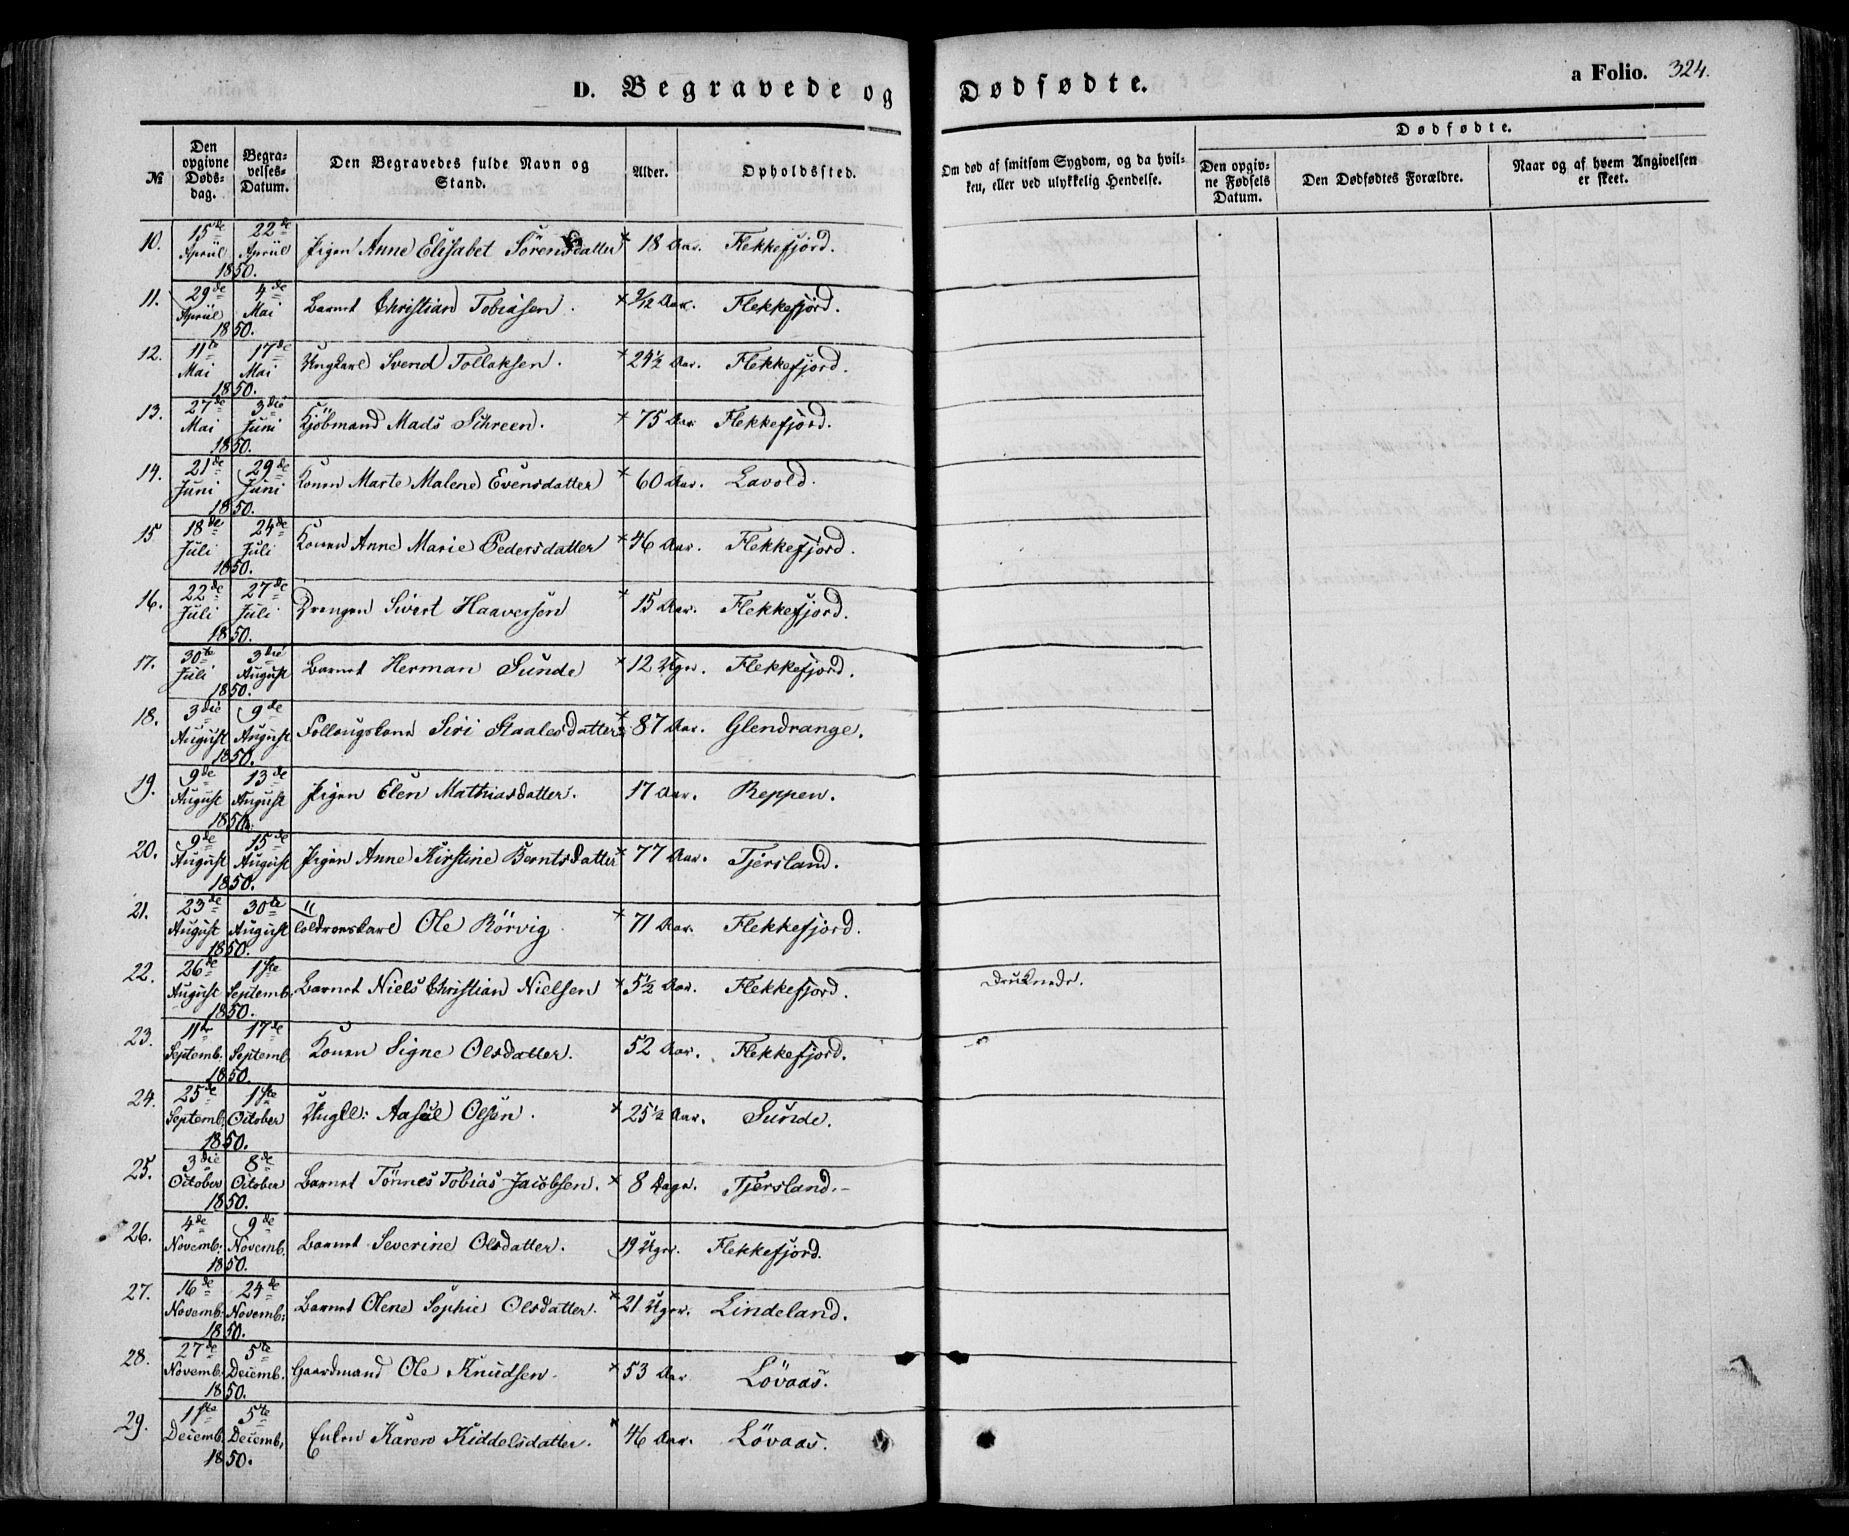 D. Begravede og Dødfødte. a Folio. 324.
No
Den opgivne Døds- dag.
Begra- velses- Datum.
Den Begravedes fulde Navn og Stand.
Alder.
Opholdssted.
Om død af smitsom Sygdom, og da hvil- ken, eller ved ulykkelig Hendelse.
Dødfødte.
Den opgiv- ne Fødsels Datum.
Den Dødfødtes Forældre.
Naar og af hvem Angivelsen er skeet.
10. 15de April 22de April 1850. Pigen Anne Elisabet Sörensdatter × 18 Aar. Flekkefjord.
11. 29de April 4de Mai 1850. Barnet Christian Tobiasen. × 9/12 Aar. Flekkefjord.
12. 11te Mai 17de Mai 1850. Ungkarl Svend Tollaksen. × 24½ Aar. Flekkefjord.
13. 27de Mai 3die Juni 1850. Kjöbmand Mads Schreen. × 75 Aar Flekkefjord.
14. 21de Juni 29de Juni 1850. Konen Marte Malene Evensdatter × 60 Aar. Lavold.
15 18de Juli 24de Juli 1850. Konen Anne Marie Pedersdatter × 46 Aar. Flekkefjord.
16. 22de Juli 27de Juli 1850. Drengen Sivert Haaversen × 15 Aar. Flekkefjord.
17. 30te Juli 3die August 1850. Barnet Herman Sunde × 12 Uger. Flekkefjord.
18. 3die August 9de August 1850. Siri Staalesdatter × 87 Aar. Glendrange.
19. 9de August 13de August 1850. Pigen Elen Mathiasdatter. 17 Aar. Reppen.
20. 9de August 15de August 1850. Pigen Anne Kirstine Berntsdatter × 77 Aar. Tjersland.
21. 23de August 30te August 1850. Ole Rörvig × 71 Aar. Flekkefjord.
22. 26de August 1ste Septemb. 1850. Barnet Niels Christian Nielsen × 5½ Aar. Flekkefjord. Druknede.
23. 11te Septemb. 17de Septemb. 1850. Konen Signe Olsdatter. × 52 Aar. Flekkefjord.
24. 25de Septemb. 1ste October 1850. Ungk: Olsen. × 25½ Aar. Sunde.
25. 3die October 8de October 1850. Barnet Tönnes Tobias Jacobsen. × 8 Dage. Tjersland.
26. 4de Novemb. 9de Novemb. 1850. Barnet Severine Olsdatter. 19 Uger. Flekkefjord.
27. 16de Novemb. 24de Novemb: 1850. Barnet Olene Sophie Olsdatter. × 21 Uger. Lindeland.
28. 27de Novemb. 5te Decemb. 1850. Gaardmand Ole Knudsen. × 53 Aar Lövaas.
29. 1ste Decemb. 5te Decemb. 1850. Enken Karen Kiddelsdatter. × 46 Aar. Lövaas.